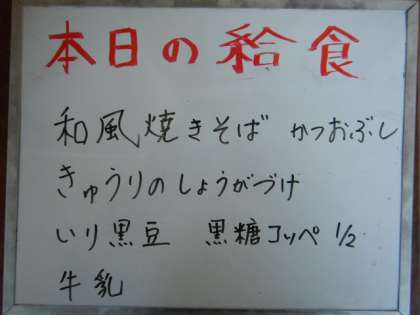 本日の給食
和風焼きそば かつおぶし
きゅうりのしょうがづけ
いり黒豆 黒糖コッペ 1/2
牛乳